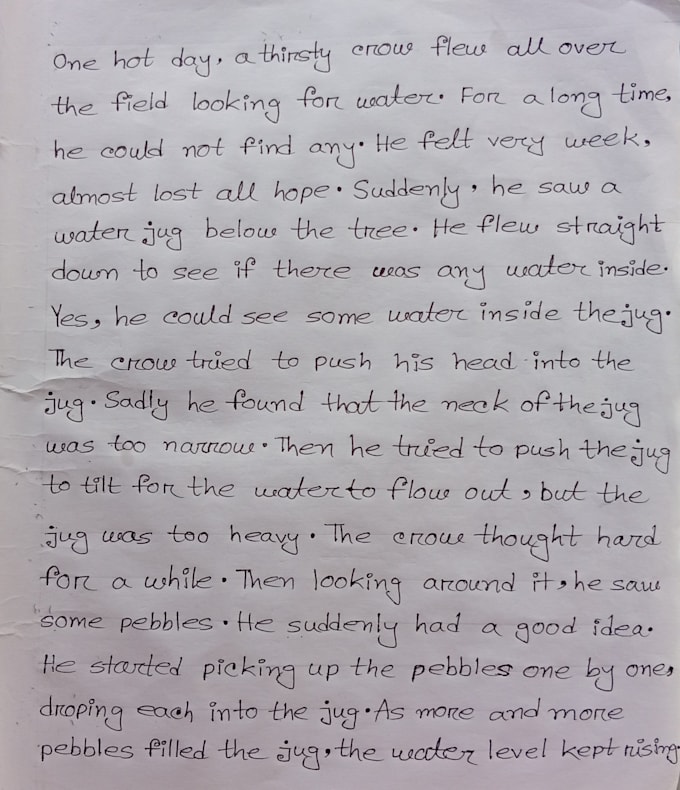 One hot day, a thirsty crow flew all over
the field looking for water. For a long time,
he could not find any. He felt very week,
almost lost all hope. Suddenly, he saw a
water jug below the tree. He flew straight
down to see if there was any water inside.
Yes, he could see some water inside the jug.
The crow tried to push his head into the
jug. Sadly he found that the neck of the jug
was too narrow. Then he tried to push the jug
to tilt for the water to flow out, but the
jug was too heavy. The crow thought hard
for a while. Then looking around it, he saw
some pebbles. He suddenly had a good idea.
He started picking up the pebbles one by one,
droping each into the jug. As more and more
pebbles filled the jug, the water level kept rising